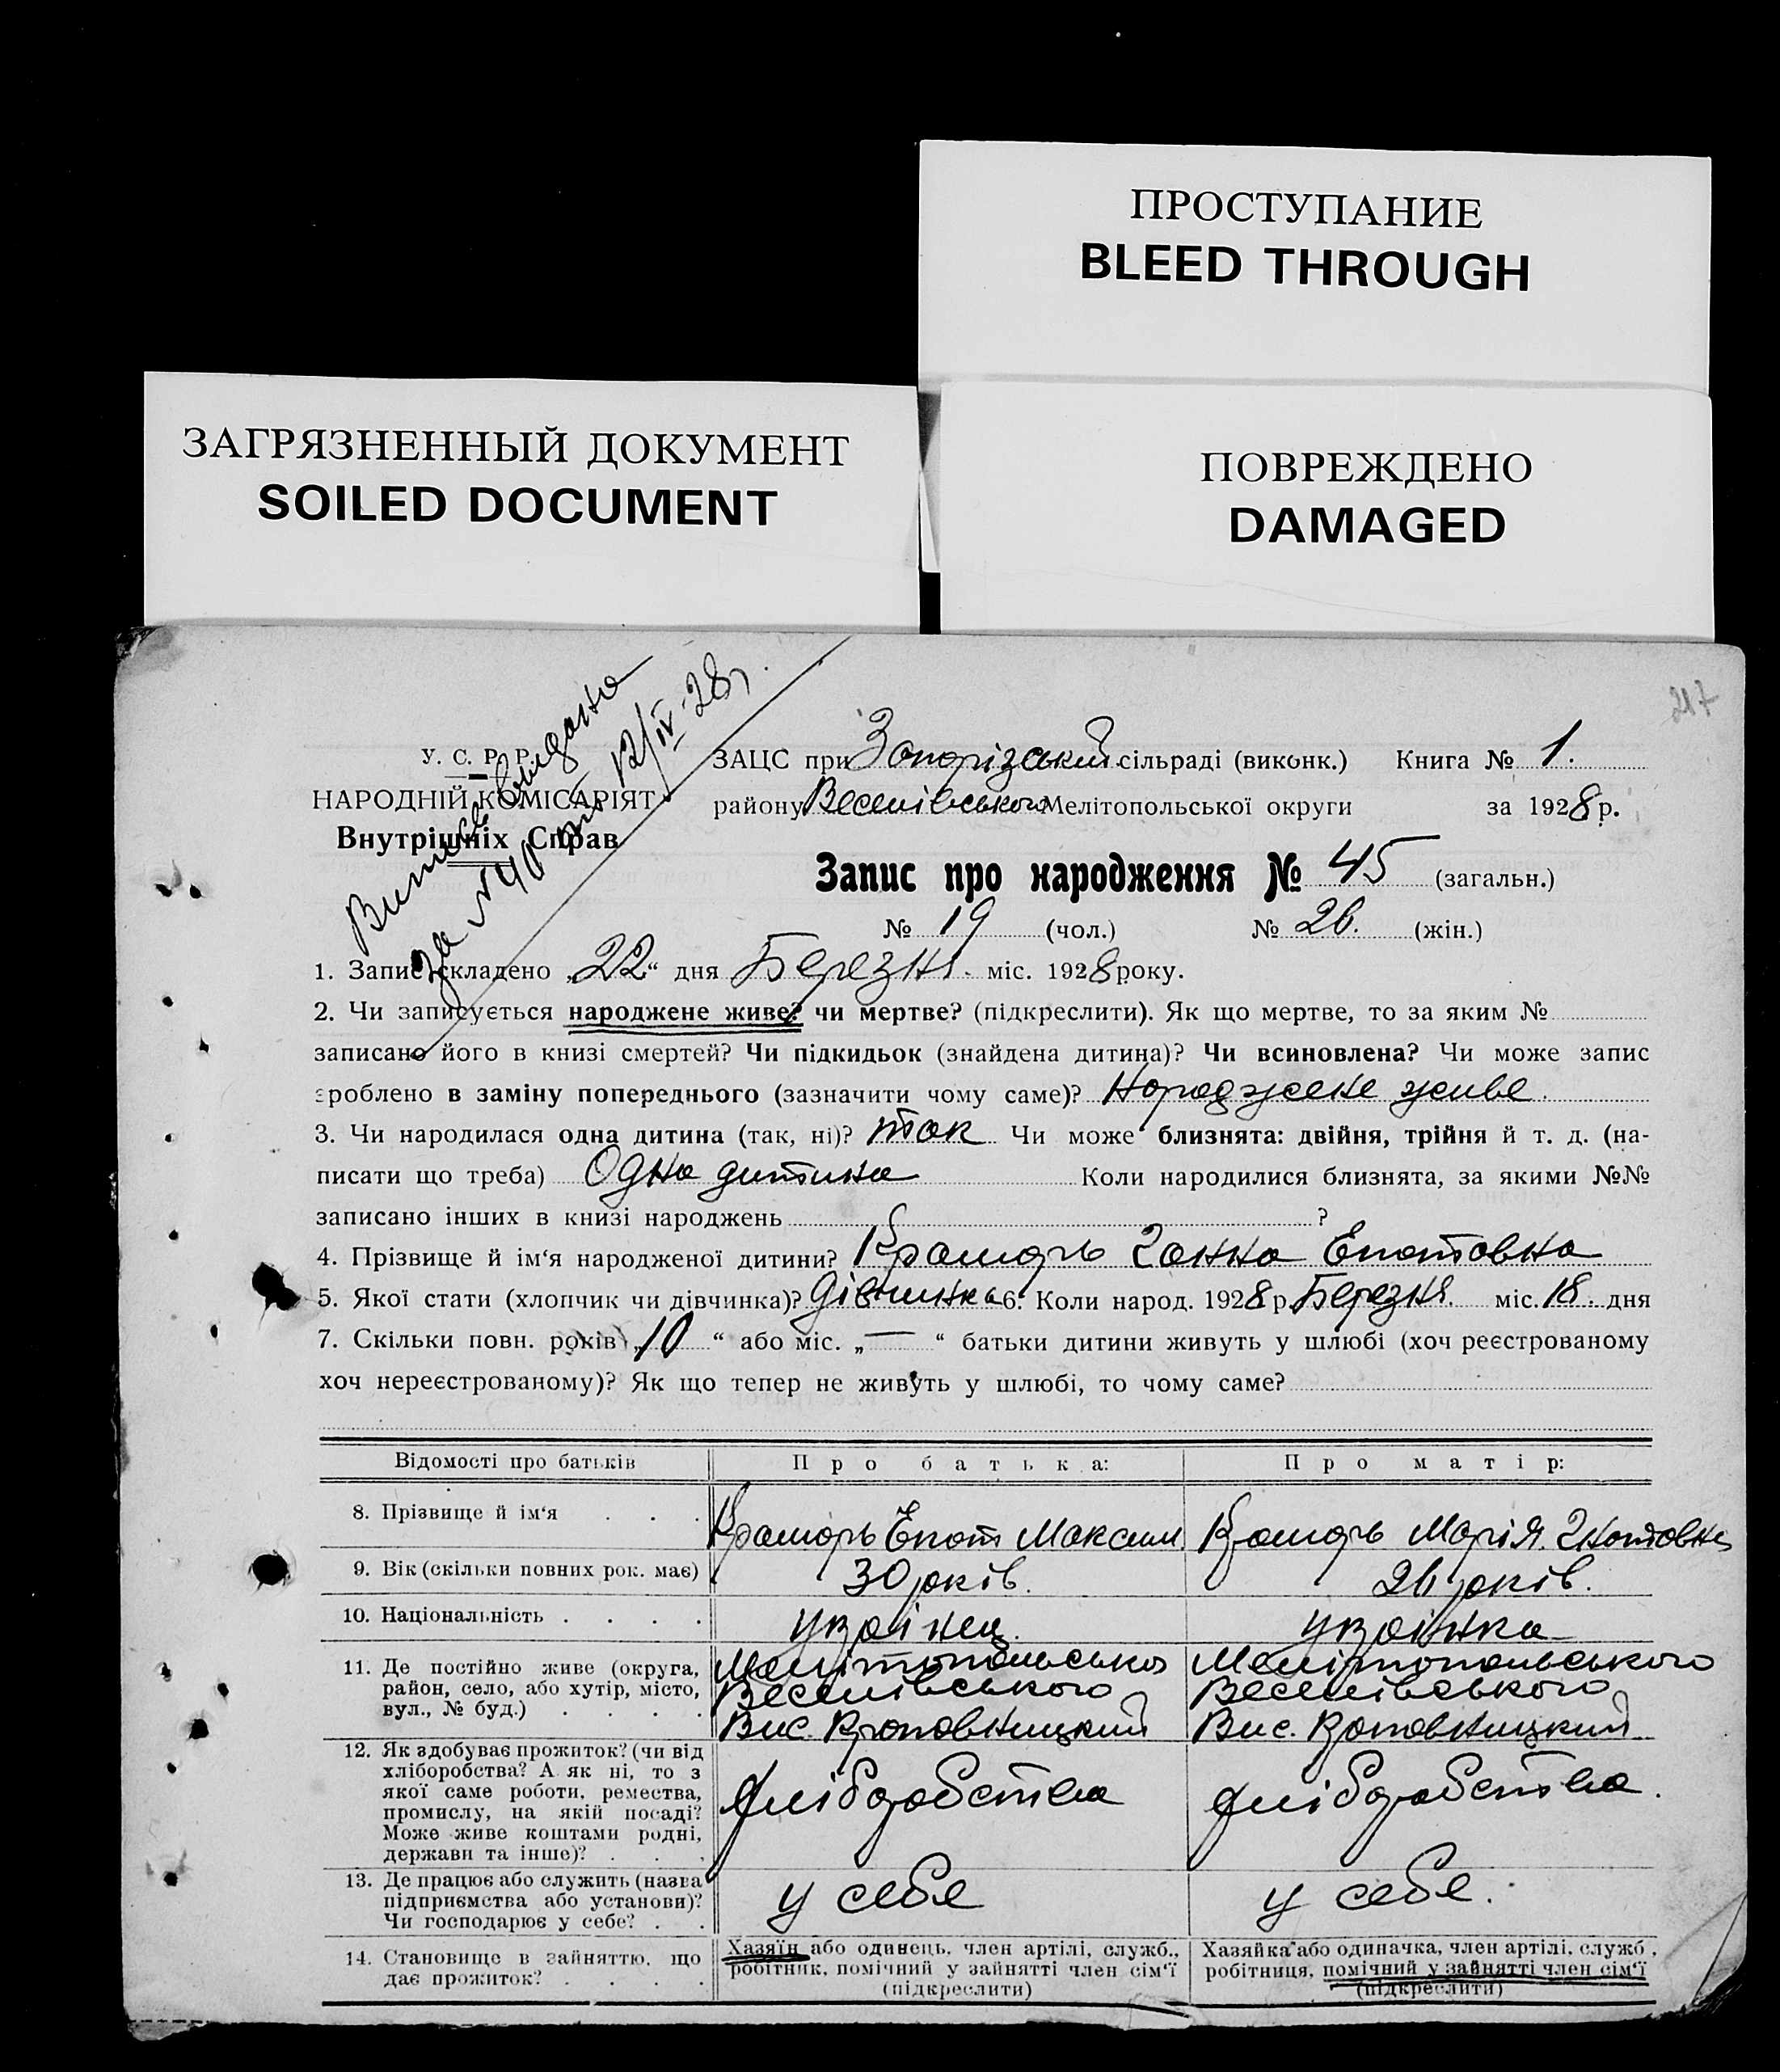 ПРОСТУПАНИЕ
BLEED THROUGH
ЗАГРЯЗНЕННЫЙ ДОКУМЕНТ
SOILED DOCUMENT
ПОВРЕЖДЕНО
DAMAGED
217
Виписъ видана
за № 40 12/IV-28 р.
У. С. Р. Р.
НАРОДНІЙ КОМІСАРІЯТ
Внутрішніх Справ
ЗАЦС при Запорізький сільраді (виконк.) Книга № 1.
району Веселівського Мелітопольської округи за 1928 р.
Запис про народження № 45 (загальн.)
№ 19 (чол.) № 26. (жін.)
1. Запис складено „22“ дня Березня міс. 1928 року.
2. Чи записується народжене живе? чи мертве? (підкреслити). Як що мертве, то за яким №
записано його в книзі смертей? Чи підкидьок (знайдена дитина)? Чи всиновлена? Чи може запис
зроблено в заміну попереднього (зазначити чому саме)? Народжене живе
3. Чи народилася одна дитина (так, ні)? так Чи може близнята: двійня, трійня й т. д. (на-
писати що треба) Одна дитина Коли народилися близнята, за якими №№
записано інших в книзі народжень ?
4. Прізвище й ім‘я народженої дитини? Крамарь Ганна Епатовна
5. Якої стати (хлопчик чи дівчинка)? дівчинка 6. Коли народ. 1928 р. Березня. міс. 18. дня
7. Скільки повн. років „10“ або міс. „—“ батьки дитини живуть у шлюбі (хоч реєстрованому
хоч нереєстрованому)? Як що тепер не живуть у шлюбі, то чому саме?
Відомості про батьків Про батька: Про матір:
8. Прізвище й ім‘я . . . Крамарь Епат Максим Крамарь Марія Гнатовна
9. Вік (скільки повних рок. має) 30 років. 26 років.
10. Національність . . . . українец. українка
11. Де постійно живе (округа,
район, село, або хутір, місто,
вул., № буд.) . . . .
Мелітопольсько Мелітопольського
Веселівського Веселівського
Вис. Кроповницкий Вис. Кроповницкий
12. Як здобуває прожиток? (чи від
хліборобства? А як ні, то з
якої саме роботи, ремества,
промислу, на якій посаді?
Може живе коштами родні,
держави та інше)? . . .
хліборобства хліборобства.
13. Де працює або служить (назва
підприємства або установи)?
Чи господарює у себе? . .
у себе у себе.
14. Становище в зайняттю, що
дає прожиток? . . . .
Хазяїн або одинець, член артілі, служб.,
робітник, помічний у зайнятті член сім‘ї
(підкреслити)
Хазяйка або одиначка, член артілі, служб.,
робітниця, помічний у зайнятті член сім‘ї
(підкреслити)